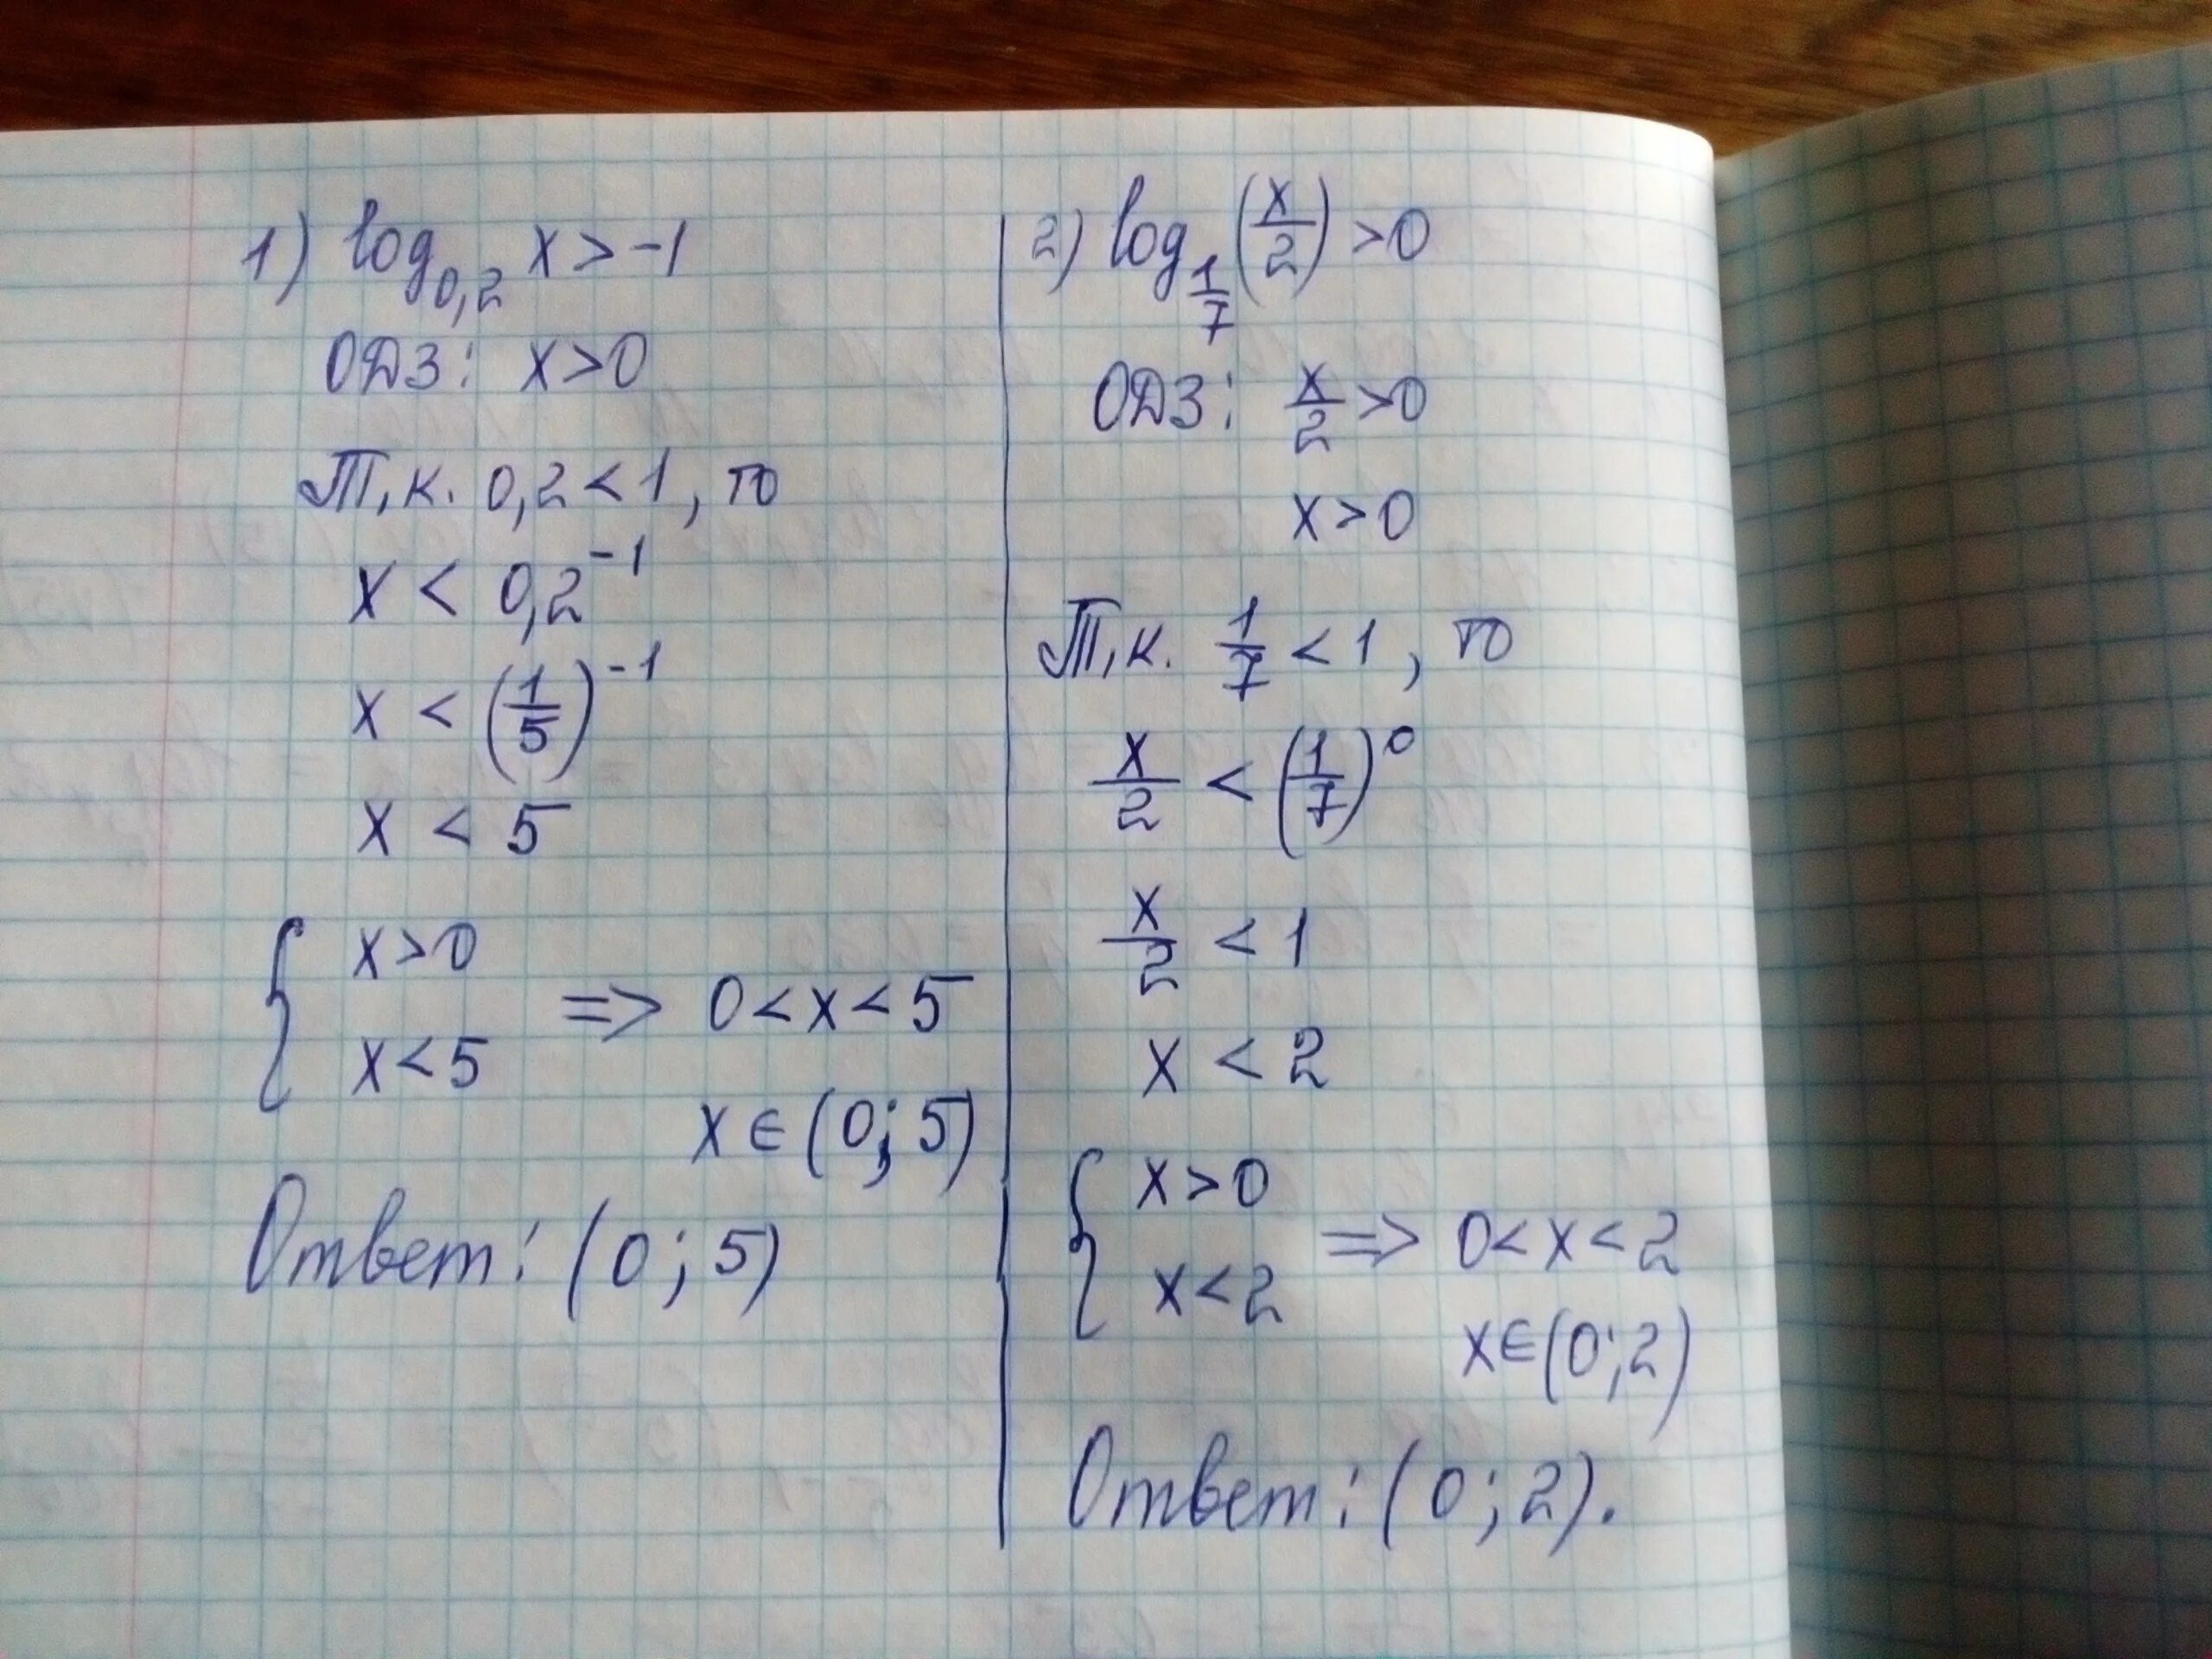 1) log_{0,2} x > -1
ОДЗ: x > 0
Т.к. 0,2 < 1, то
x < 0,2^{-1}
x < (1/5)^{-1}
x < 5
{ x > 0
x < 5 => 0 < x < 5
x ∈ (0; 5)
Ответ: (0; 5)
2) log_{1/7} (x/2) > 0
ОДЗ: x/2 > 0
x > 0
Т.к. 1/7 < 1, то
x/2 < (1/7)^0
x/2 < 1
x < 2
{ x > 0
x < 2 => 0 < x < 2
x ∈ (0; 2)
Ответ: (0; 2).